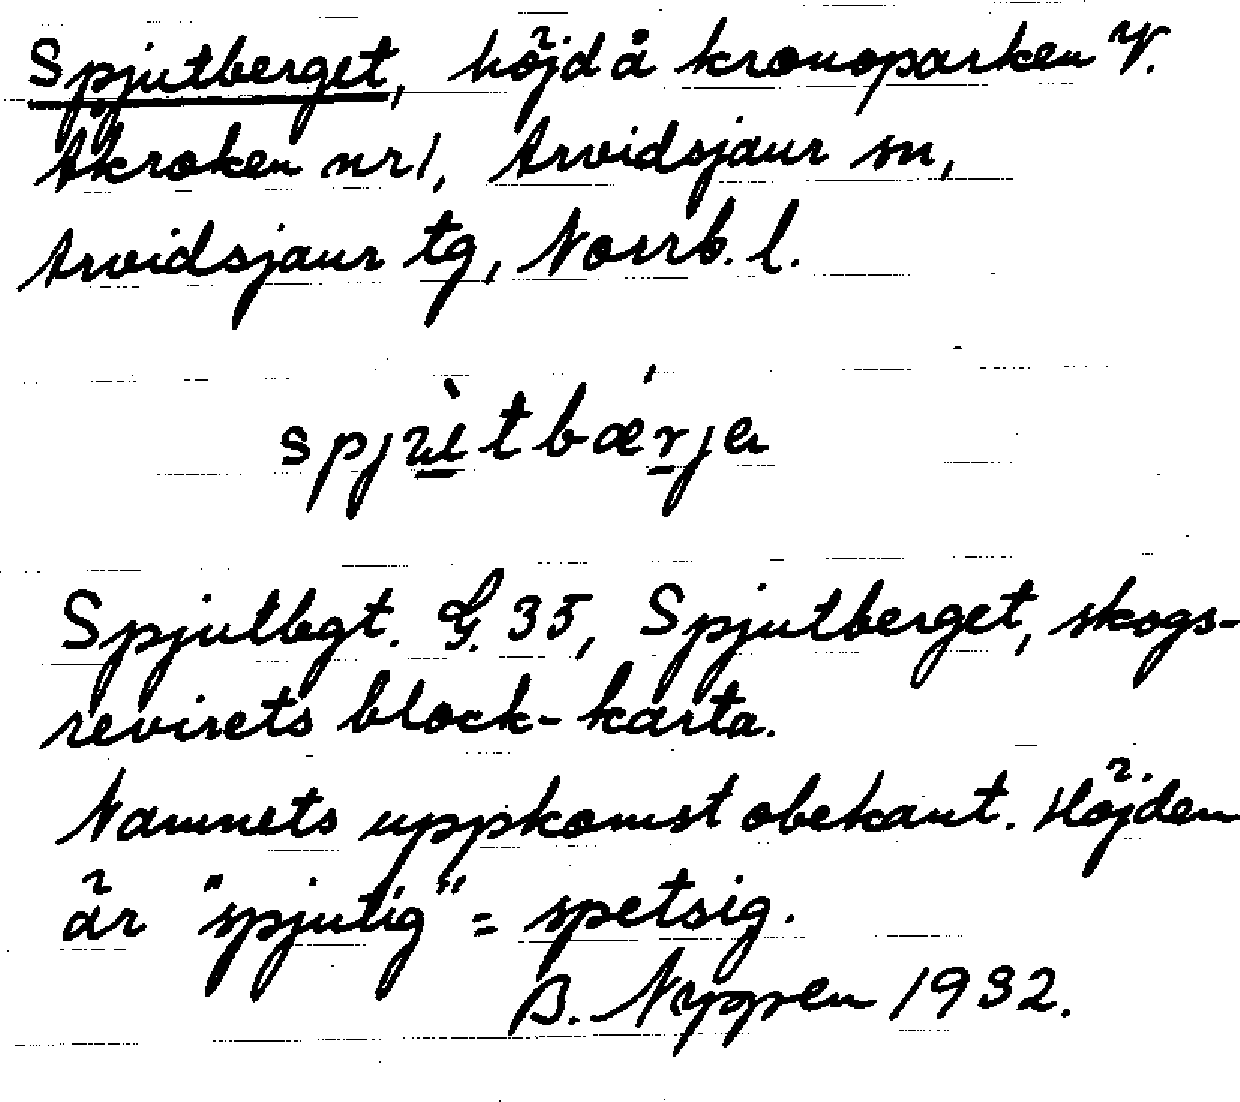 Spjutberget, höjd å kronoparken V.
Åkroken nr 1, Arvidsjaur sn,
Arvidsjaur tg, Norrb. l.
spjùtbæŕja
Spjutbgt. G. 35, Spjutberget, skogs-
revirets block-karta.
Namnets uppkomst obekant. Höjden
är "spjutig" = spetsig.
B. Nygren 1932.